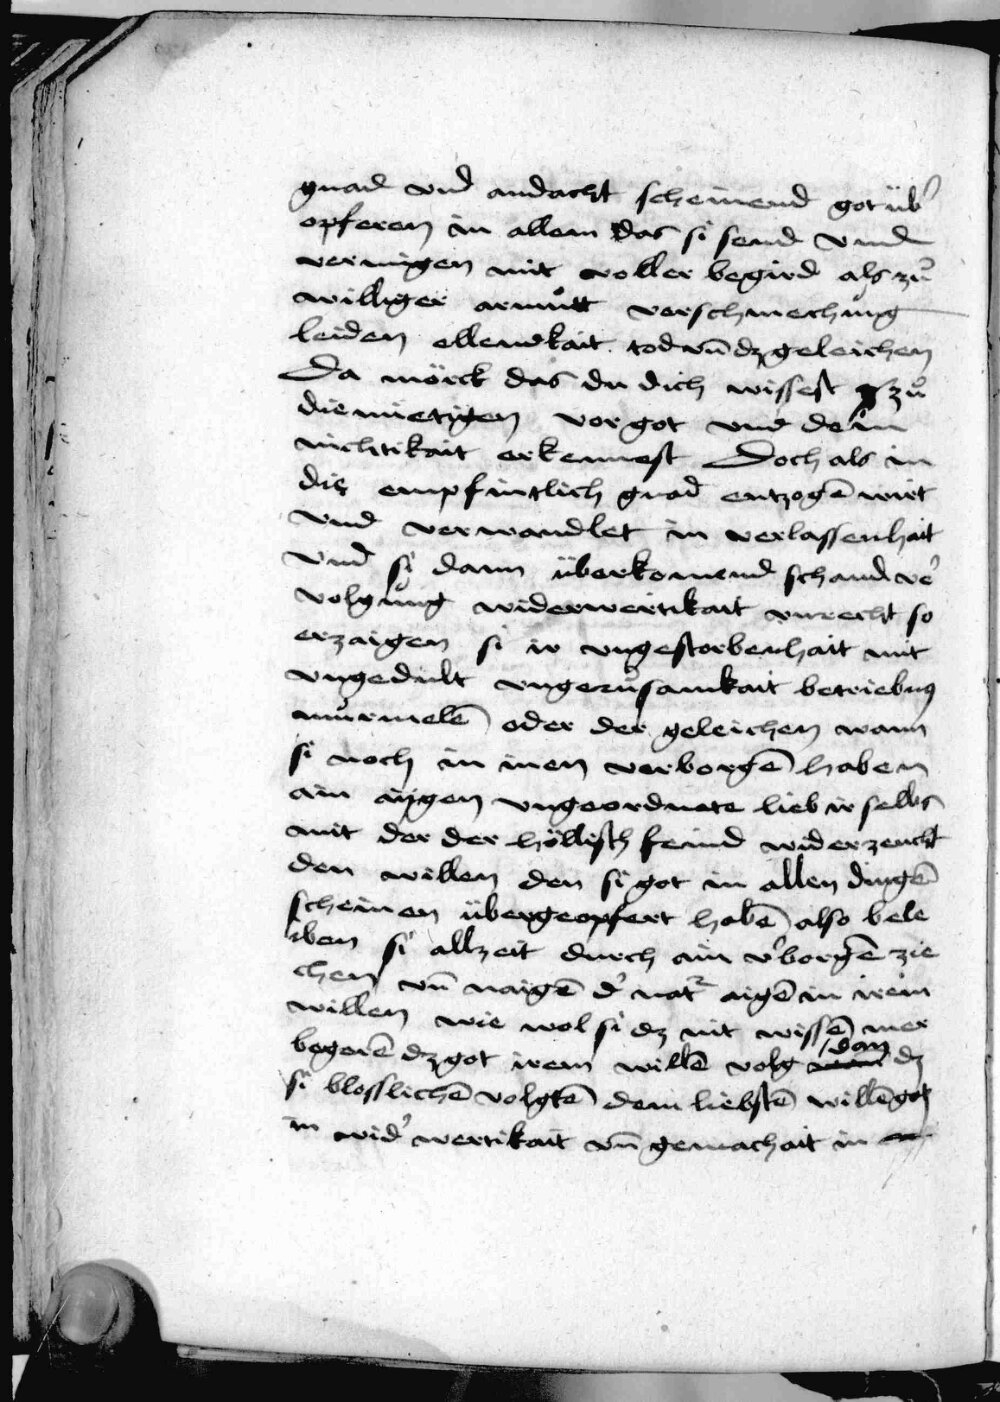 gnad vnd andacht scheinend got üb̾
opferen in allem das si send vnd
vermigen mit voller begird als zů
williger armůtt verschmechůng
leiden ellendkait tod vn̄ dz geleichen
Da mörck das du dich wissest zů
diemietigen vor got vnd dein
nichtikait erkennest Doch als in
die empfintlich gnad entzogē wirt
vnd verwandlet in verlassenhait
vnd si dann überkomend schand ve̾
volgůng widerwertikait vnrecht so
erzaigen si ir vngestorbenhait mit
vngedult vngerůsamkait betriebnꝰ
můrmelē oder der geleichen wann
si noch in inen verborgē haben
ain aygen vngeordnote lieb ir selbs
mit der der höllisch feind widerzeucht
den willen den si got in allen dingē
scheinen übergeopfert habē also bele
iben si allzeit durch ain v̾borgē zie
chen vn̄ naigē d̾ nat̾ aigē in irem
willen wie wol si dz nit wissē mer
begerē dz got irem willē volg dan dz
si blosslichē volgtē dem liebstē willē got
in wid̾wertikait vn̄ gemachait in